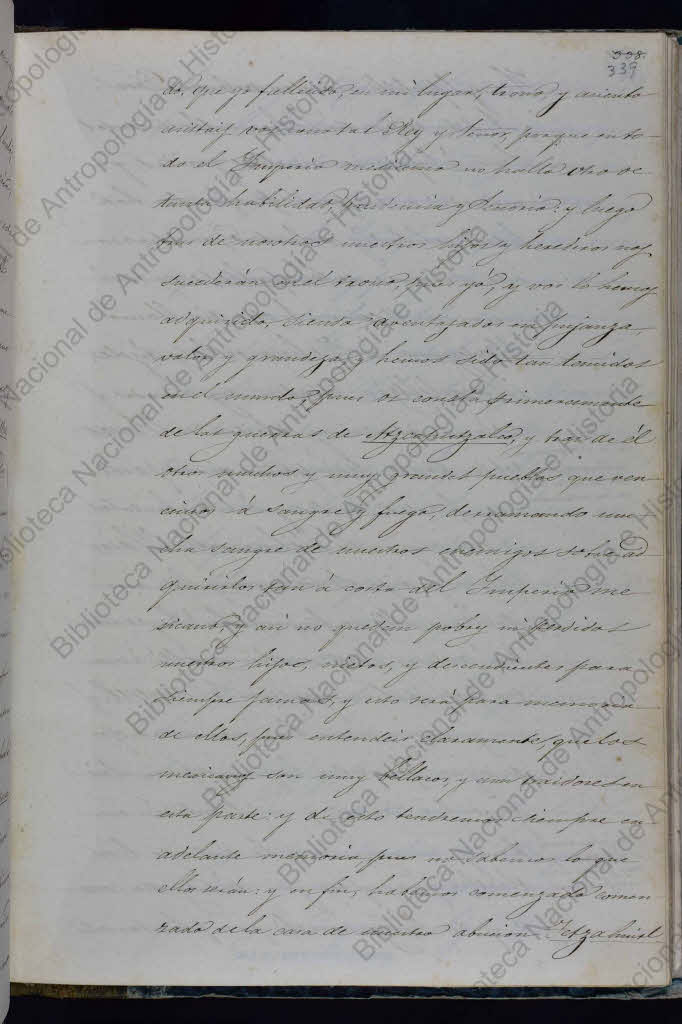 338.
339
do, que yo fallecido, en mi lugar, trono, y asiento
vos como tal Rey y Señor, porque en to-
do el Imperio mexicano no hallo otro de
tanta habilidad, y Señorio: y luego
tras de nosotros nuestros hijos y herederos nos
sucederán en el trono, pues yo, y vos lo hemos
adquirido, siendo aventajados en pujanza,
valor, y grandeza, y hemos sido tan temidos
en el mundo, pues os consta primeramente
de las guerras de Atzcaputzalco, y tras de él
otros muchos y muy grandes pueblos que ven-
cimos á sangre y fuego, derramando mu-
cha sangre de nuestros enemigos sobre ad
quirirlos tan á costa del Imperio me-
xicano, y asi no queden pobres ni perdidos
nuestros hijos, nietos, y descendientes para
siempre jamas, y esto será para memoria
de ellos, pues entendeis claramente, que los
mexicanos son muy bellacos, y aun traidores en
esta parte: y de esto tendremos siempre en
adelante memoria, pues no sabemos lo que
ellos serán: y en fin, habemos comenzado comen-
zado de la casa de nuestro abucion Tetzahuitl-
Biblioteca Nacional de Antropología e Historia